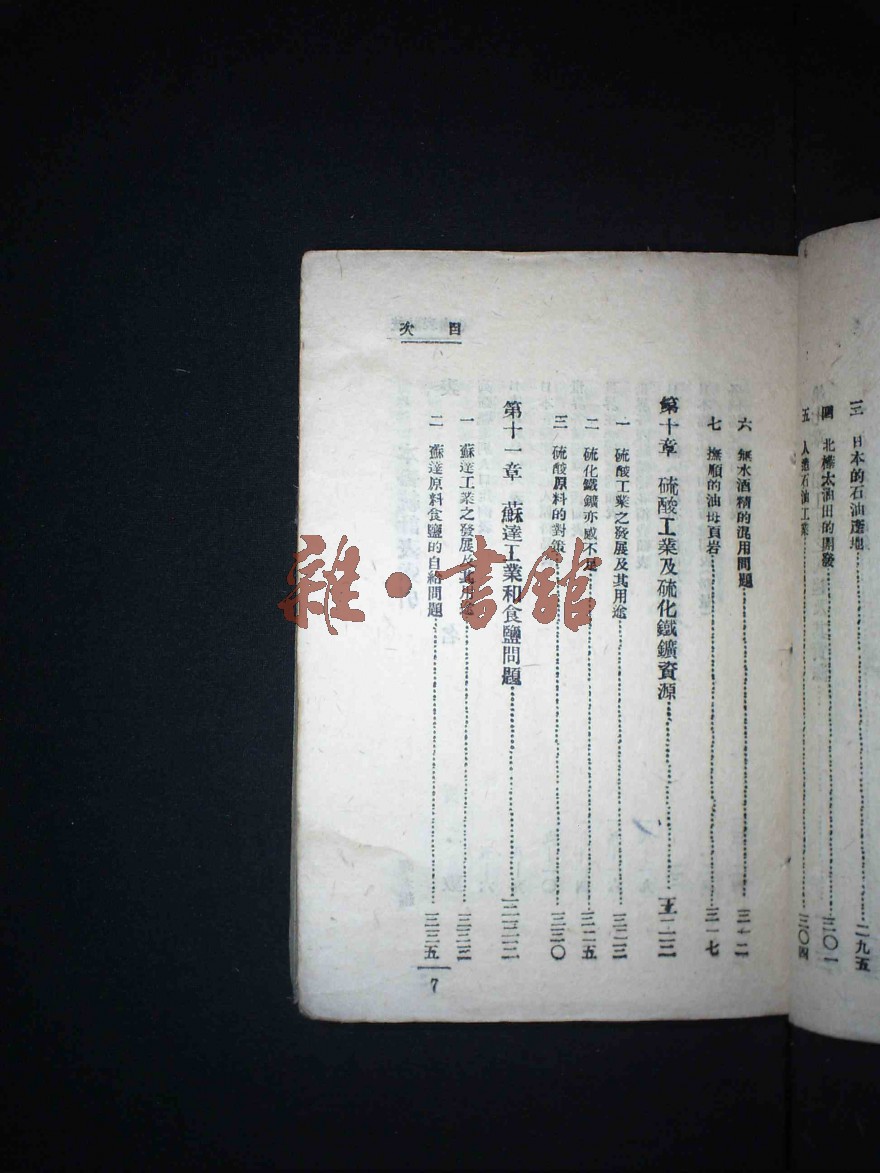 三　日本的石油產地……二九五
四　北樺太油田的開發……三〇一
五　人造石油工業……三〇四
目次
六　無水酒精的混用問題……三十二
七　撫順的油母頁岩……三一七
第十章　硫酸工業及硫化鐵鑛資源
一　硫酸工業之發展及其用途……三二三
二　硫化鐵鑛亦感不足……三二五
三　硫酸原料的對策……三三〇
第十一章　蘇達工業和食鹽問題
一　蘇達工業之發展及其用途……三三三
二　蘇達原料食鹽的自給問題……三三五
7
雜·書館